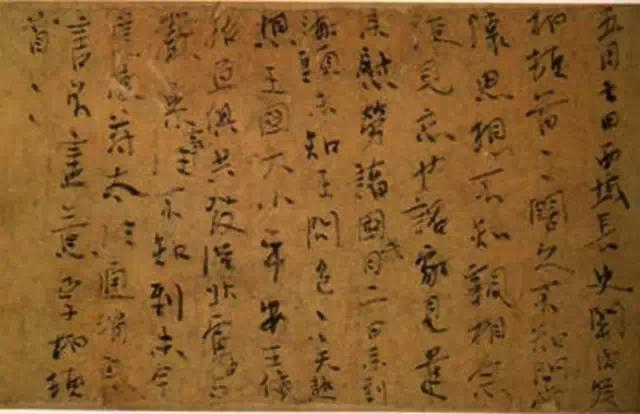 五月七日西域長史關內侯
柏頓首〻闊久不知問常
懷思想不知親相念
便見忘也詔家見遣
來慰勞諸國此月二日來到
海頭未知王問邑〻天熱
想王國大小平安王使
招亘俱共發從北虜中
與嚴參事往不知到未今
遣使苻太往通消息
書不盡意李柏頓
首〻